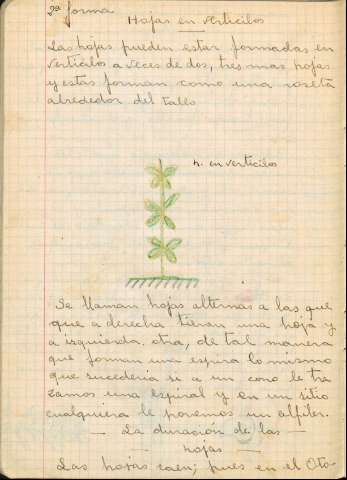 2ª forma
Hojas en verticilos
Las hojas pueden estar formadas en
verticilos a veces de dos, tres mas hojas
y estas forman como una roseta
alrededor del tallo
h. en verticilos
Se llaman hojas alternas a las que
que a derecha tienen una hoja y
a izquierda otra, de tal manera
que forman una espira lo mismo
que sucederia si a un cono le tra
zamos una espiral y en un sitio
cualquiera le ponemos un alfiler.
— La duración de las —
— hojas —
Las hojas caen; pues en el Oto-